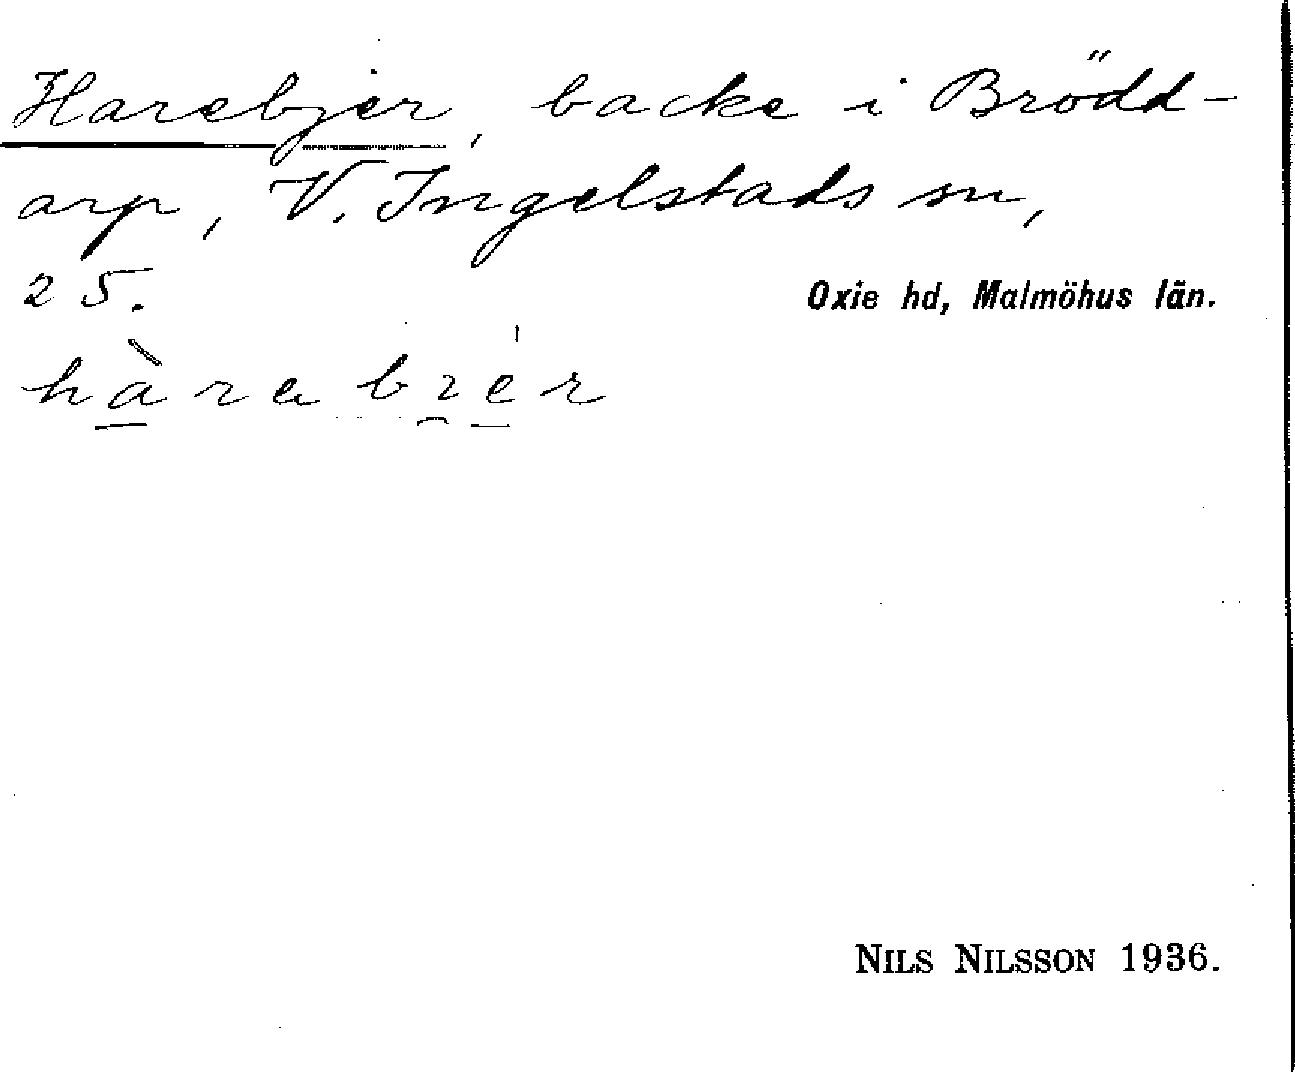 Harebjer, backe i Brödd-
arp, V. Ingelstads sn,
25.
Oxie hd, Malmöhus län.
hàrabiér
NILS NILSSON 1936.